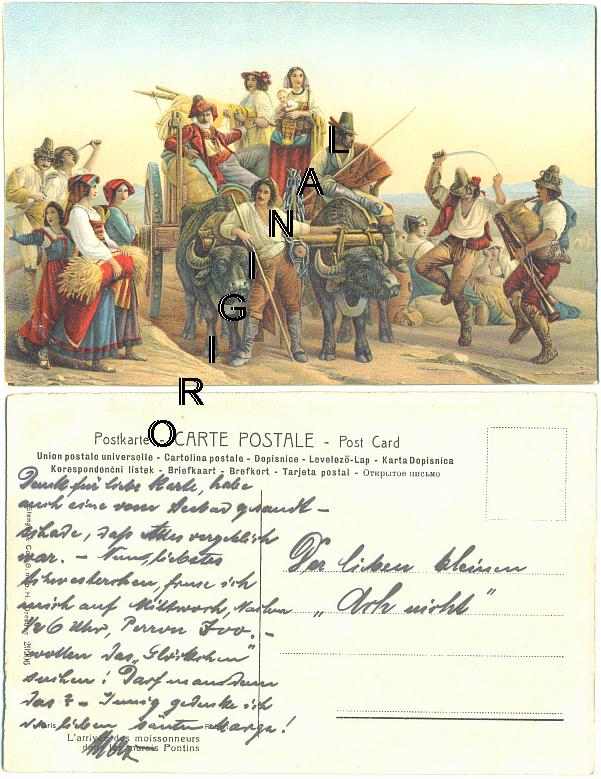 ORIGINAL
Postkarte - CARTE POSTALE - Post Card
Union postale universelle - Cartolina postale - Dopisnice - Levelező-Lap - Karta Dopisnica
Korespondenční lístek - Briefkaart - Brefkort - Tarjeta postal - Открытое письмо
Dank für liebe Karte, habe
auch eine vom Neckar gesandt -
schade, daß Alles vergeblich
war. - Nun, liebstes
Schwesterchen, freue ich
mich auf Mittwoch, Nachm
1/2 6 Uhr, Perron Zoo. -
wollen das „Glöckchen"
suchen! Darf man denn
das? - Innig gedenke ich
lieben
Der lieben kleinen
„Ach nicht"
L'arrivée des moissonneurs
dans les marais Pontins